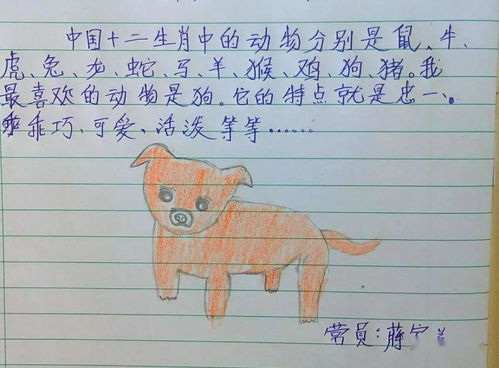 中国十二生肖中的动物分别是鼠、牛、
虎、兔、龙、蛇、马、羊、猴、鸡、狗、猪。我
最喜欢的动物是狗。它的特点就是忠一、
乖巧、可爱、活泼等等……
营员:蒋